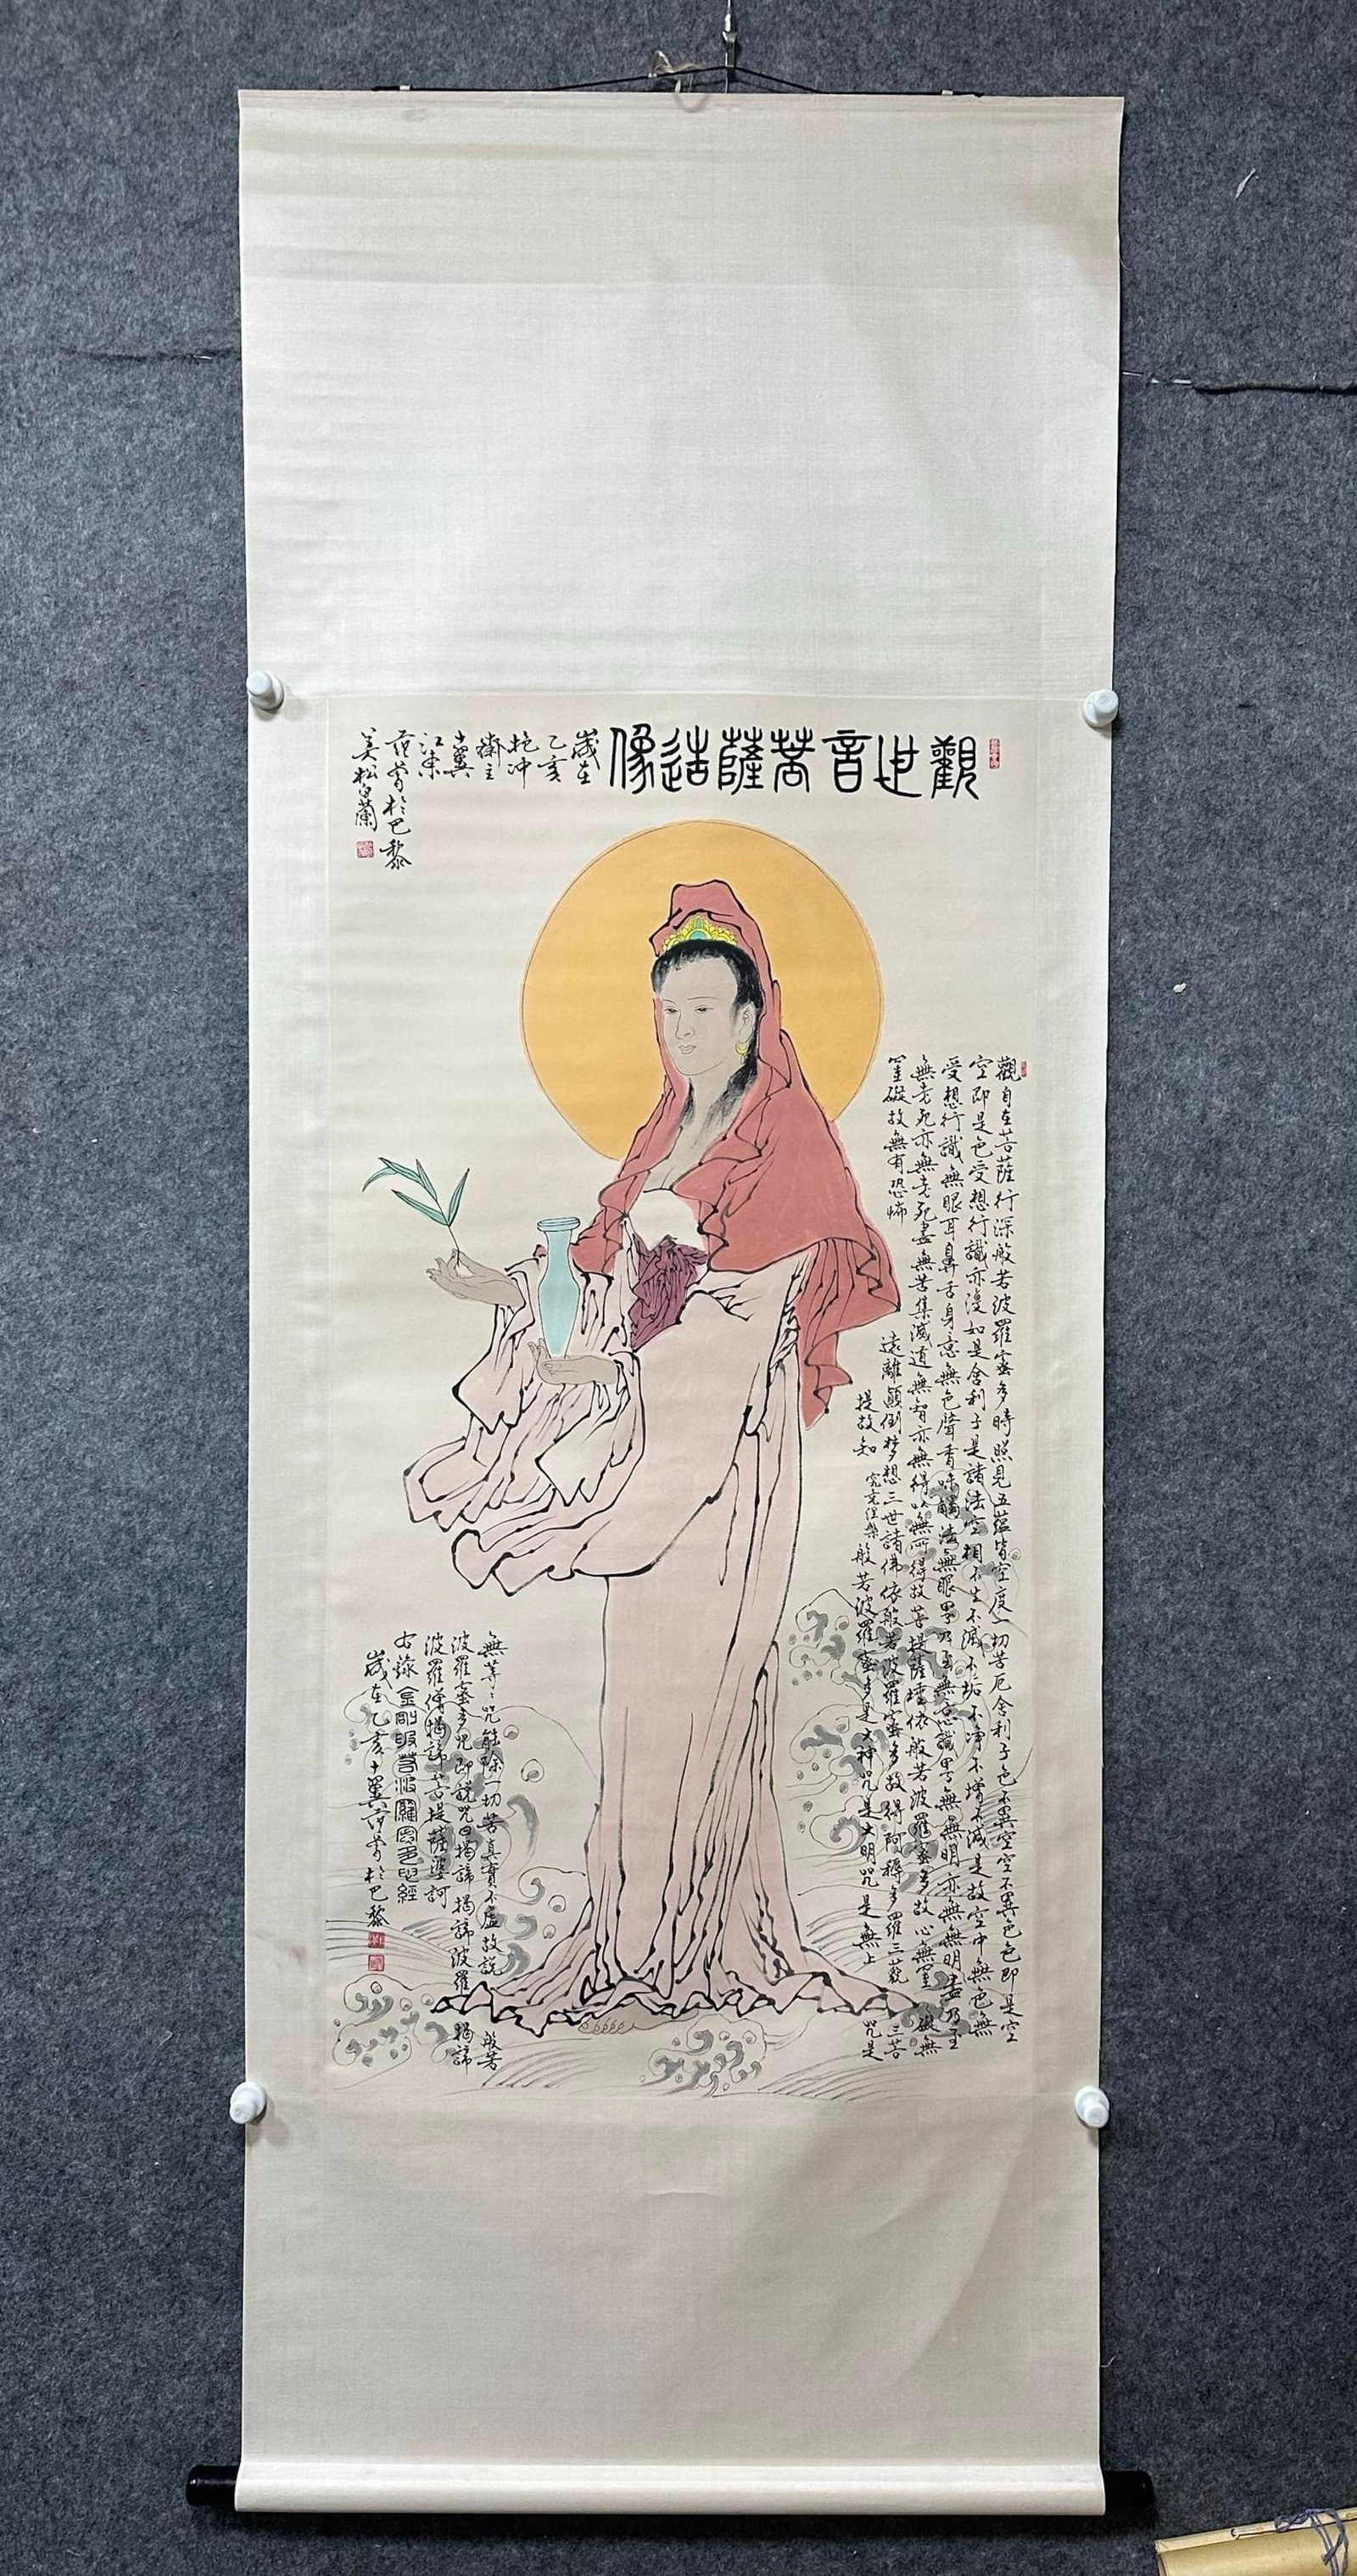 觀世音菩薩造像
歲在
乙亥
抱冲
齋主
十翼
江東
范曾於巴黎
美松白蘭
觀自在菩薩行深般若波羅蜜多時照見五蘊皆空度一切苦厄舍利子色不異空空不異色色即是空
空即是色受想行識亦復如是舍利子是諸法空相不生不滅不垢不淨不增不減是故空中無色無
受想行識無眼耳鼻舌身意無色聲香味觸法無眼界乃至無意識界無無明亦無無明盡乃至
無老死亦無老死盡無苦集滅道無智亦無得以無所得故菩提薩埵依般若波羅蜜多故心無罣礙無
罣礙故無有恐怖遠離顛倒夢想三世諸佛依般若波羅蜜多故得阿耨多羅三藐三菩
提故知究竟涅槃般若波羅蜜多是大神咒是大明咒是無上咒是
無等等咒能除一切苦真實不虛故說般若
波羅蜜多咒即說咒曰揭諦揭諦波羅揭諦
波羅僧揭諦菩提薩婆訶
右錄金剛般若波羅蜜多心經
歲在乙亥十翼范曾於巴黎